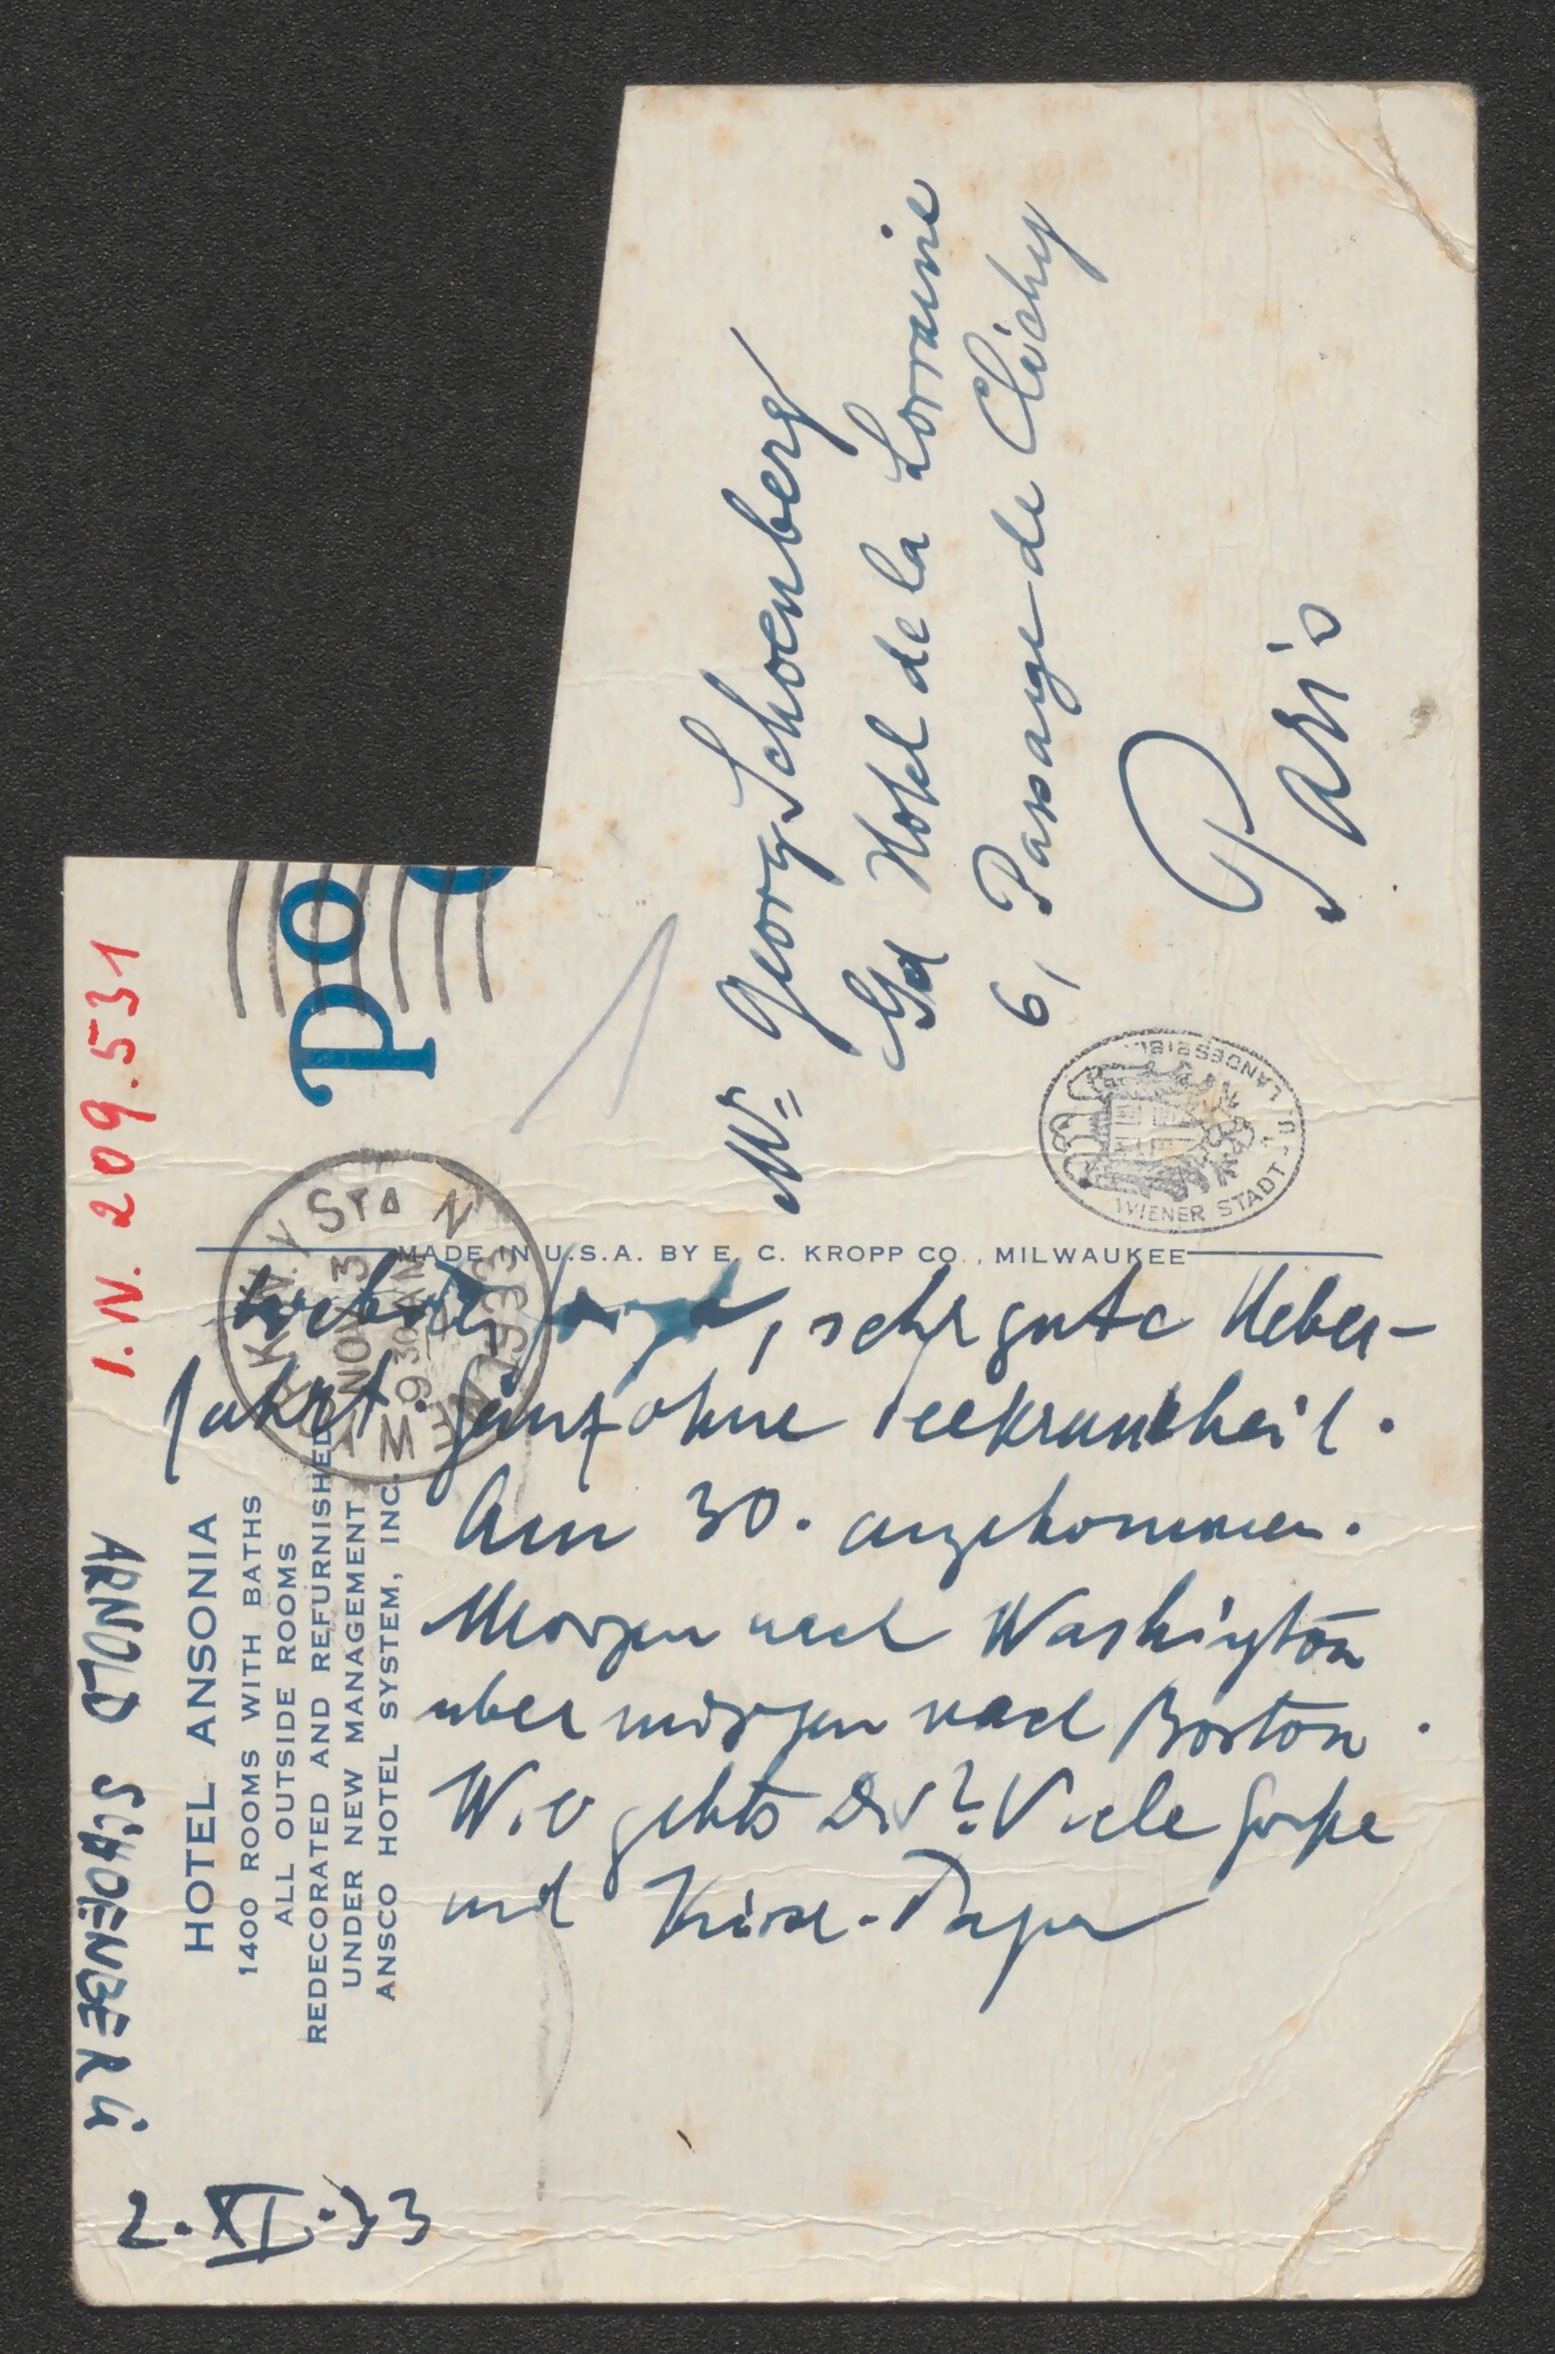 I.N. 209.531
PO
N.Y. STA N
NOV 3
9 30 AM
1933
Mr Georg Schoenberg
Gd Hotel de la Lorraine
6, Passage de Clichy
Paris
WIENER STADT- U. LANDESBIBL.
MADE IN U.S.A. BY E. C. KROPP CO., MILWAUKEE
ARNOLD SCHOENBERG
HOTEL ANSONIA
1400 ROOMS WITH BATHS
ALL OUTSIDE ROOMS
REDECORATED AND REFURNISHED
UNDER NEW MANAGEMENT
ANSCO HOTEL SYSTEM, INC.
2.XI.33
Lieber , sehr gute Ueber-
fahrt. Ganz ohne Seekrankheit.
Am 30. angekommen.
Morgen nach Washington
übermorgen nach Boston.
Wie gehts Dir? Viele Grüße
und Küsse. Papa